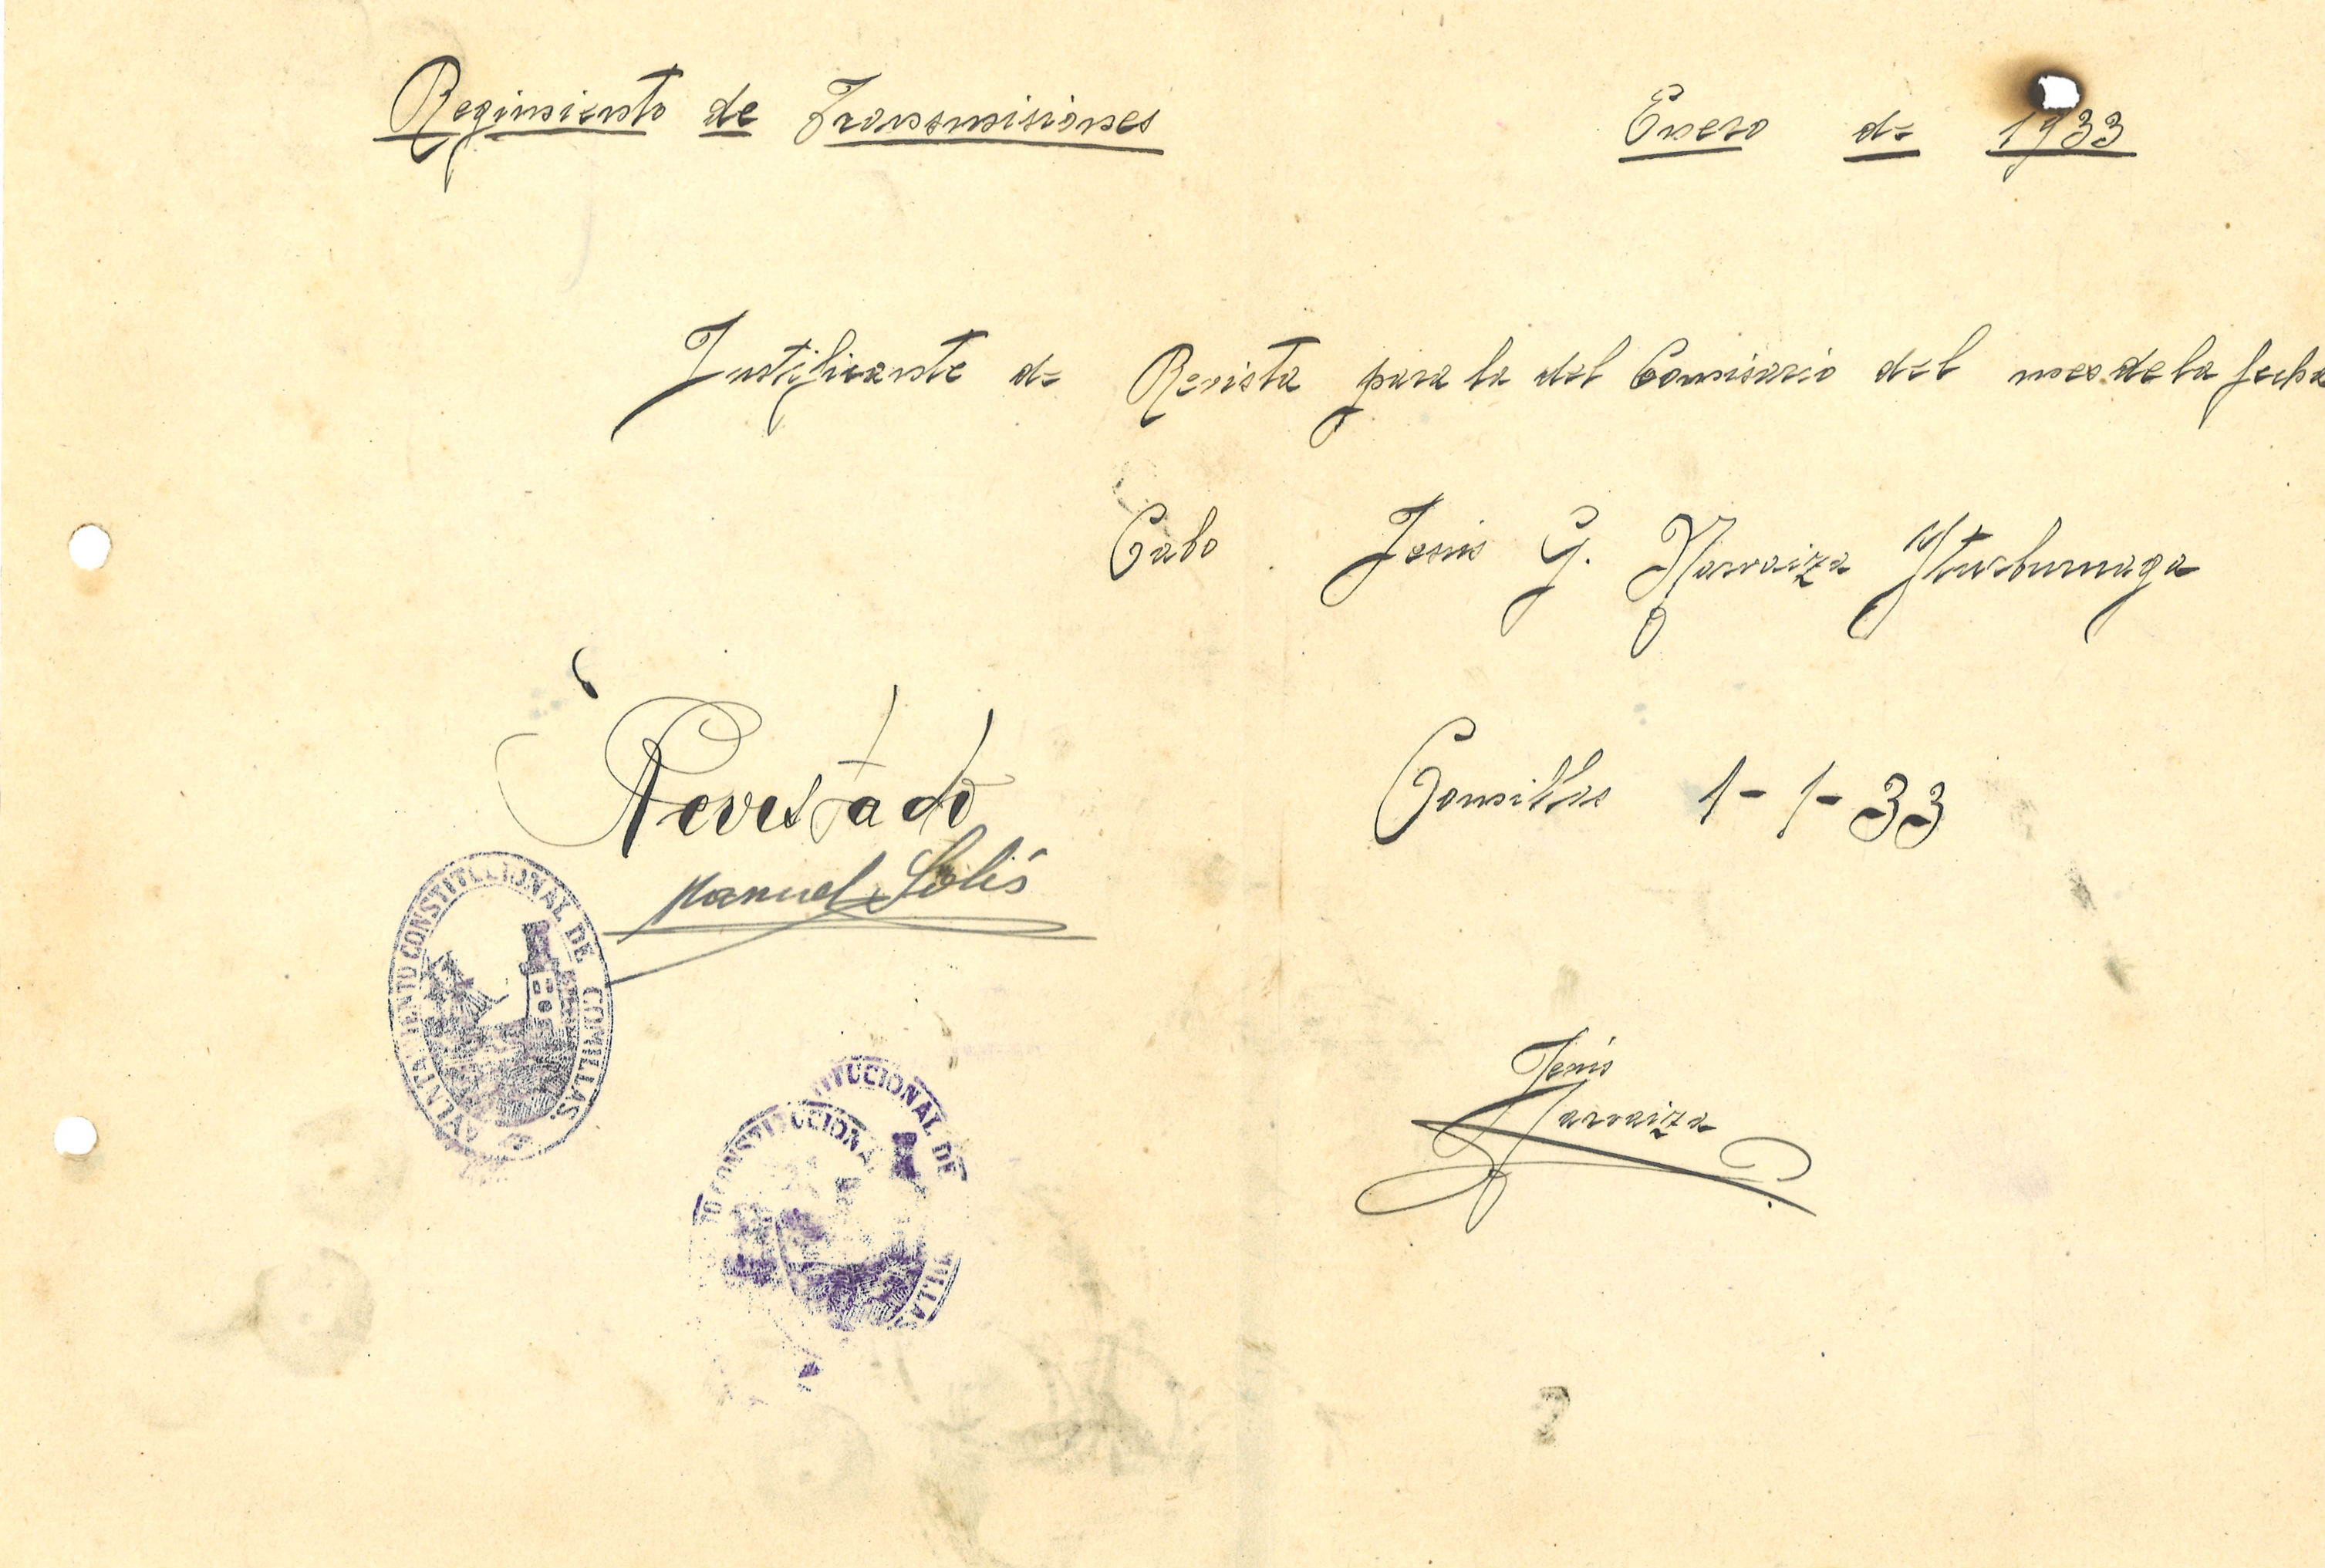 Regimiento de Transmisiones
Enero de 1933
Justificante de Revista para la del Comisario del mes de la fecha
Cabo Jesús G. Narvaiza Yturburuaga
Revistado
Comillas 1-1-33
Manuel Solís
AYUNTAMIENTO CONSTITUCIONAL DE COMILLAS
Jesús
Narvaiza
TO CONSTITUCIONAL
TITUCIONAL DE